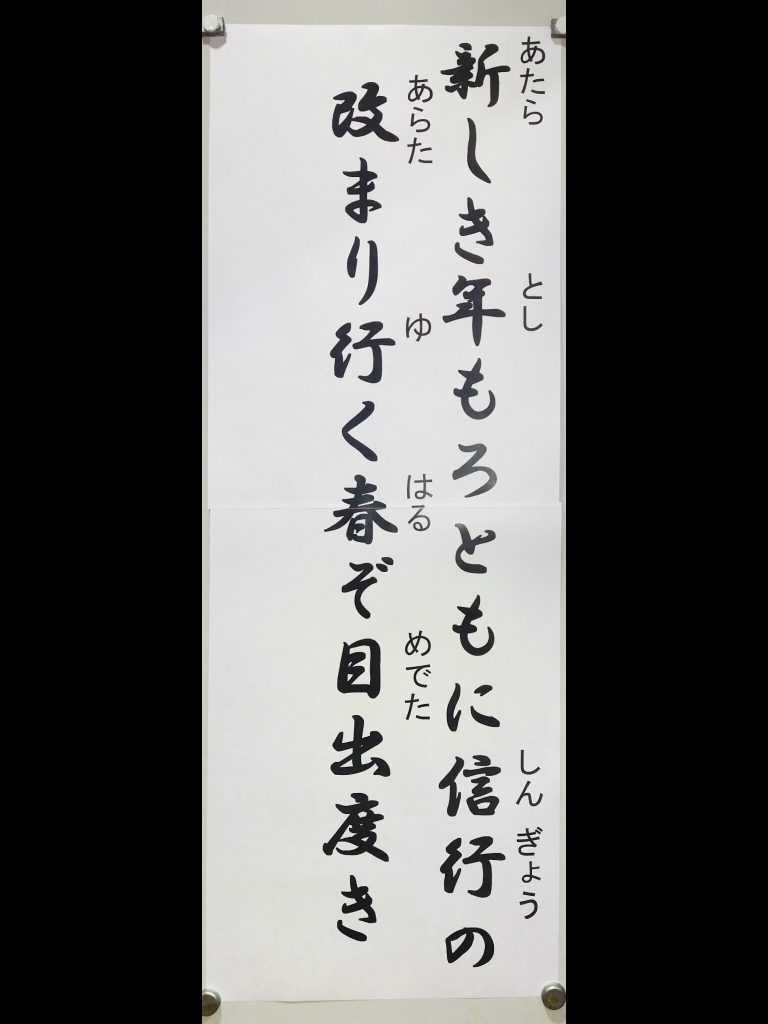 新しき年もろともに信行の
あたら とし しん ぎょう
改まり行く春ぞ目出度き
あらた ゆ はる めでた